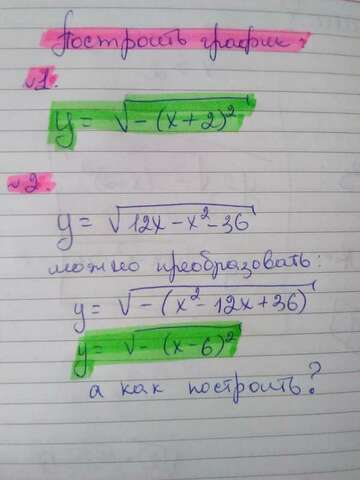 Построить график:
№1.
y = √-(x+2)²
№2.
y = √12x-x²-36
можно преобразовать:
y = √-(x²-12x+36)
y = √-(x-6)²
а как построить?